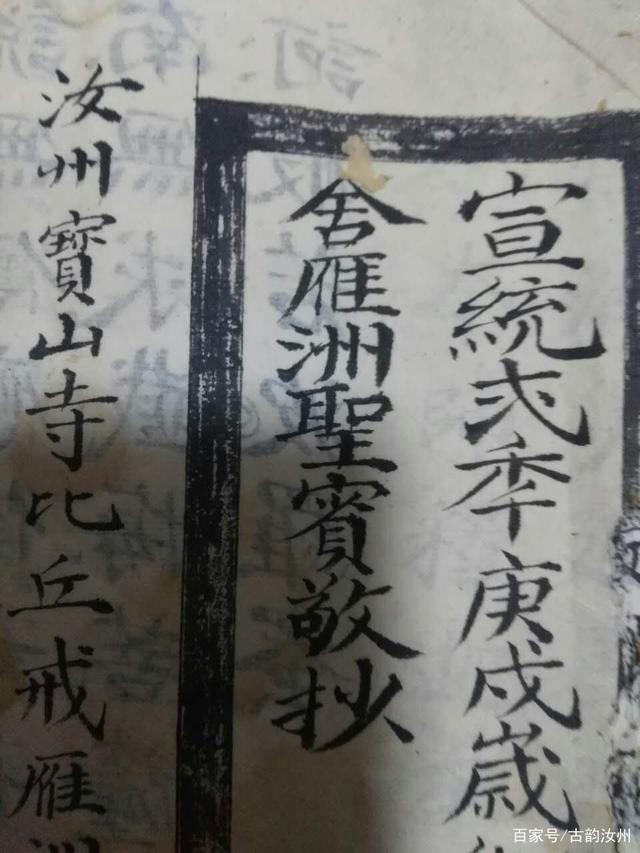 宣統弍年庚戌嵗
舍雁洲聖賓敬抄
汝州寶山寺比丘戒雁洲
百家号/古韵汝州